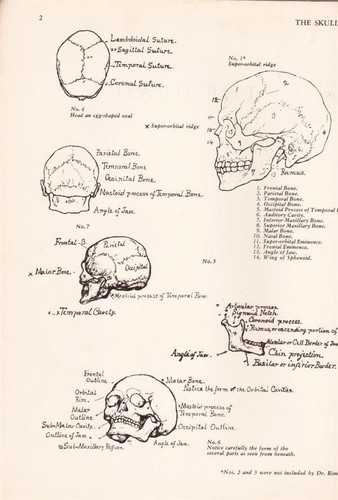 2
THE SKULL
Lambdoidal Suture.
Sagittal Suture.
Temporal Suture.
Coronal Suture.
No. 4
Head an egg-shaped oval
No. 1*
Super-orbital ridge
x Super-orbital ridge
Parietal Bone.
Temporal Bone
Occipital Bone.
Mastoid process of Temporal Bone.
Angle of Jaw.
Ramus.
1. Frontal Bone.
2. Parietal Bone.
3. Temporal Bone.
4. Occipital Bone.
5. Mastoid Process of Temporal
6. Auditory Cavity.
7. Inferior Maxillary Bone.
8. Superior Maxillary Bone.
9. Malar Bone.
10. Nasal Bone.
11. Super-orbital Eminence.
12. Frontal Eminence.
13. Angle of Jaw.
14. Wing of Sphenoid.
No. 7
Frontal
Parietal
Occipital
x Malar Bone.
No. 5
Mastoid process of Temporal Bone.
Temporal Cavity.
Articular process.
Sigmoid Notch.
Coronoid process.
Ramus or ascending portion of
Alveolar or Cell Border of Jaw
Angle of Jaw.
Chin projection.
Basilar or inferior Border.
Frontal
Outline
Malar Bone.
Notice the form of the Orbital Cavities.
Orbital
Rim.
Mastoid process of
Temporal Bone.
Malar
Outline
Sub-Malar Cavity.
Occipital Outline.
Outline of Jaw.
Sub-Maxillary Region.
Angle of Jaw.
No. 6
Notice carefully the form of the
several parts as seen from beneath.
*Nos. 2 and 3 were not included by Dr. Rim